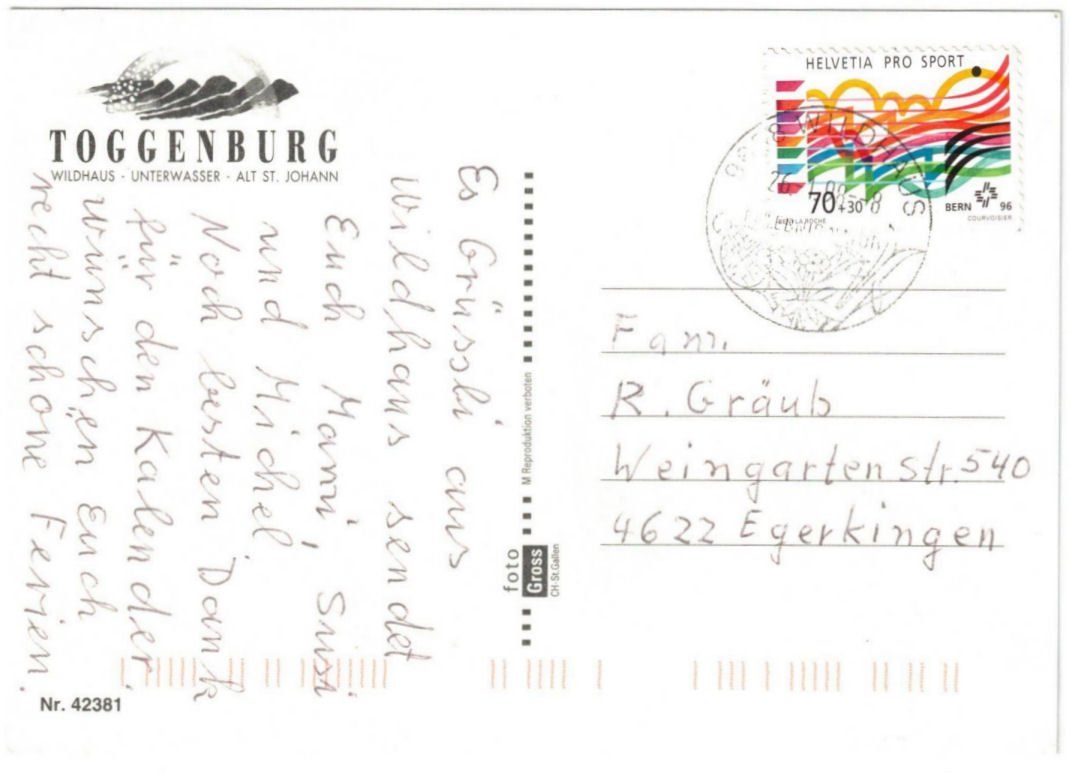 TOGGENBURG
WILDHAUS · UNTERWASSER · ALT ST. JOHANN
Es Grüssli aus
Wildhaus sendet
Euch Mami, Susi
und Michel.
Noch besten Dank
für den Kalender,
wünschen Euch
recht schöne Ferien.
Nr. 42381
M Reproduktion verboten
foto
Gross
CH-St.Gallen
HELVETIA PRO SPORT
70+30
BERN 96
COURVOISIER
WILDHAUS
Fam.
R. Gräub
Weingartenstr. 540
4622 Egerkingen